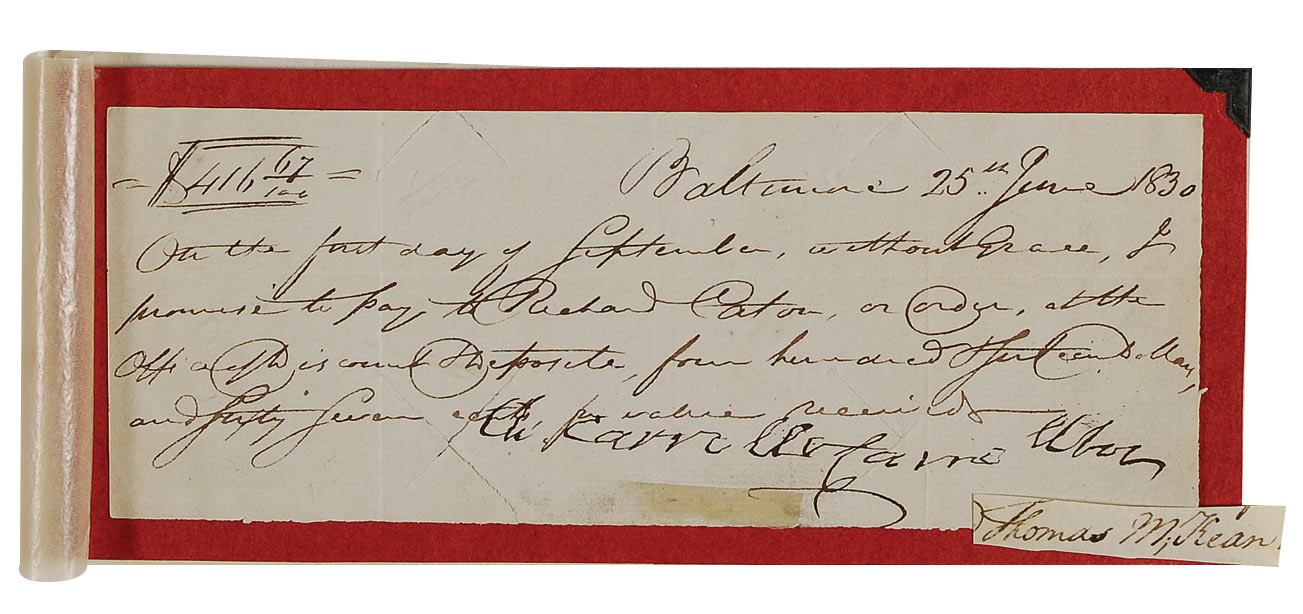 = $416 67/100 =
Baltimore 25th June 1830
On the first day of September, without Grace, I
promise to pay, to Richard Caton, or order, at the
Office of Discount & Deposite, four hundred & sixteen Dollars,
and sixty seven cents for value received
Ch. Carroll of Carrollton
Thomas M:Kean.